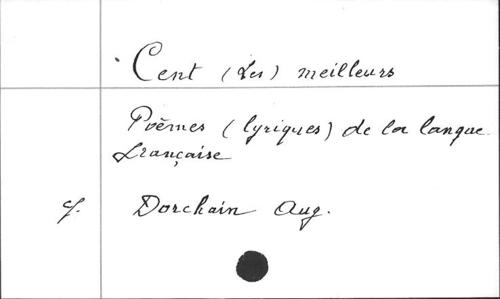 Cent (Les) meilleurs
Poèmes (lyriques) de la langue
française
cf. Dorchain Aug.